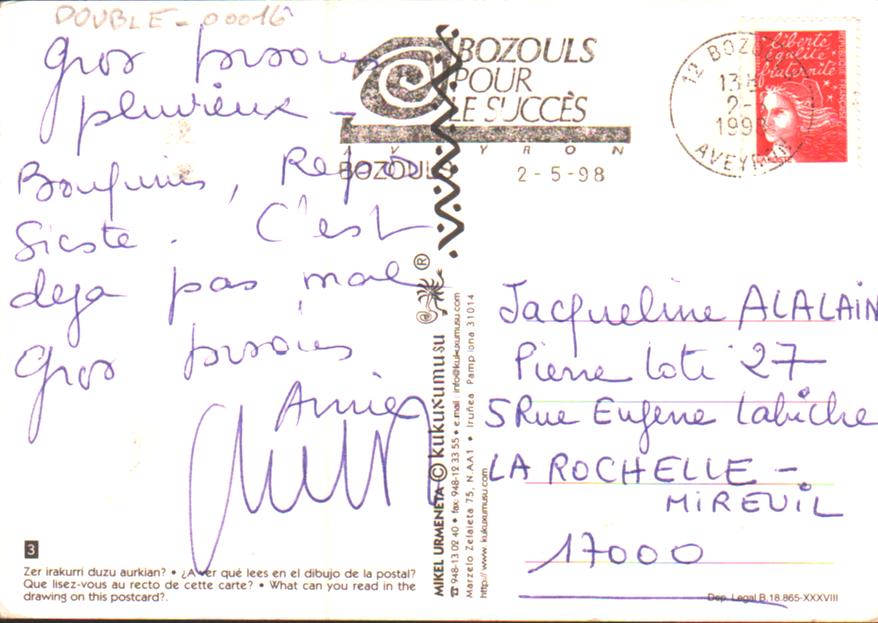 DOUBLE - 00016
Gros bisous
pluvieux -
Bouquins, Repos
Sieste. C'est
deja pas mal
Gros bisous
Annie
BOZOULS
POUR
LE SUCCÈS
AVEYRON
BOZOULS 2-5-98
12 BOZOULS
13H
2-
1998
AVEYRON
liberté
égalité
fraternité
Jacqueline ALALAIN
Pierre Loti 27
5 Rue Eugene Labiche
LA ROCHELLE -
MIREUIL
17000
MIKEL URMENETA © kukuxumusu ®
☎ 948-13 02 40 • fax. 948-12 33 55 • e.mail: info@kukuxumusu.com
Marzelo Zelaieta 75, N.AA1 • Iruñea Pamplona 31014
http://www.kukuxumusu.com
3
Zer irakurri duzu aurkian? • ¿A ver qué lees en el dibujo de la postal?
Que lisez-vous au recto de cette carte? • What can you read in the
drawing on this postcard?.
Dep. Legal B.18.865-XXXVIII